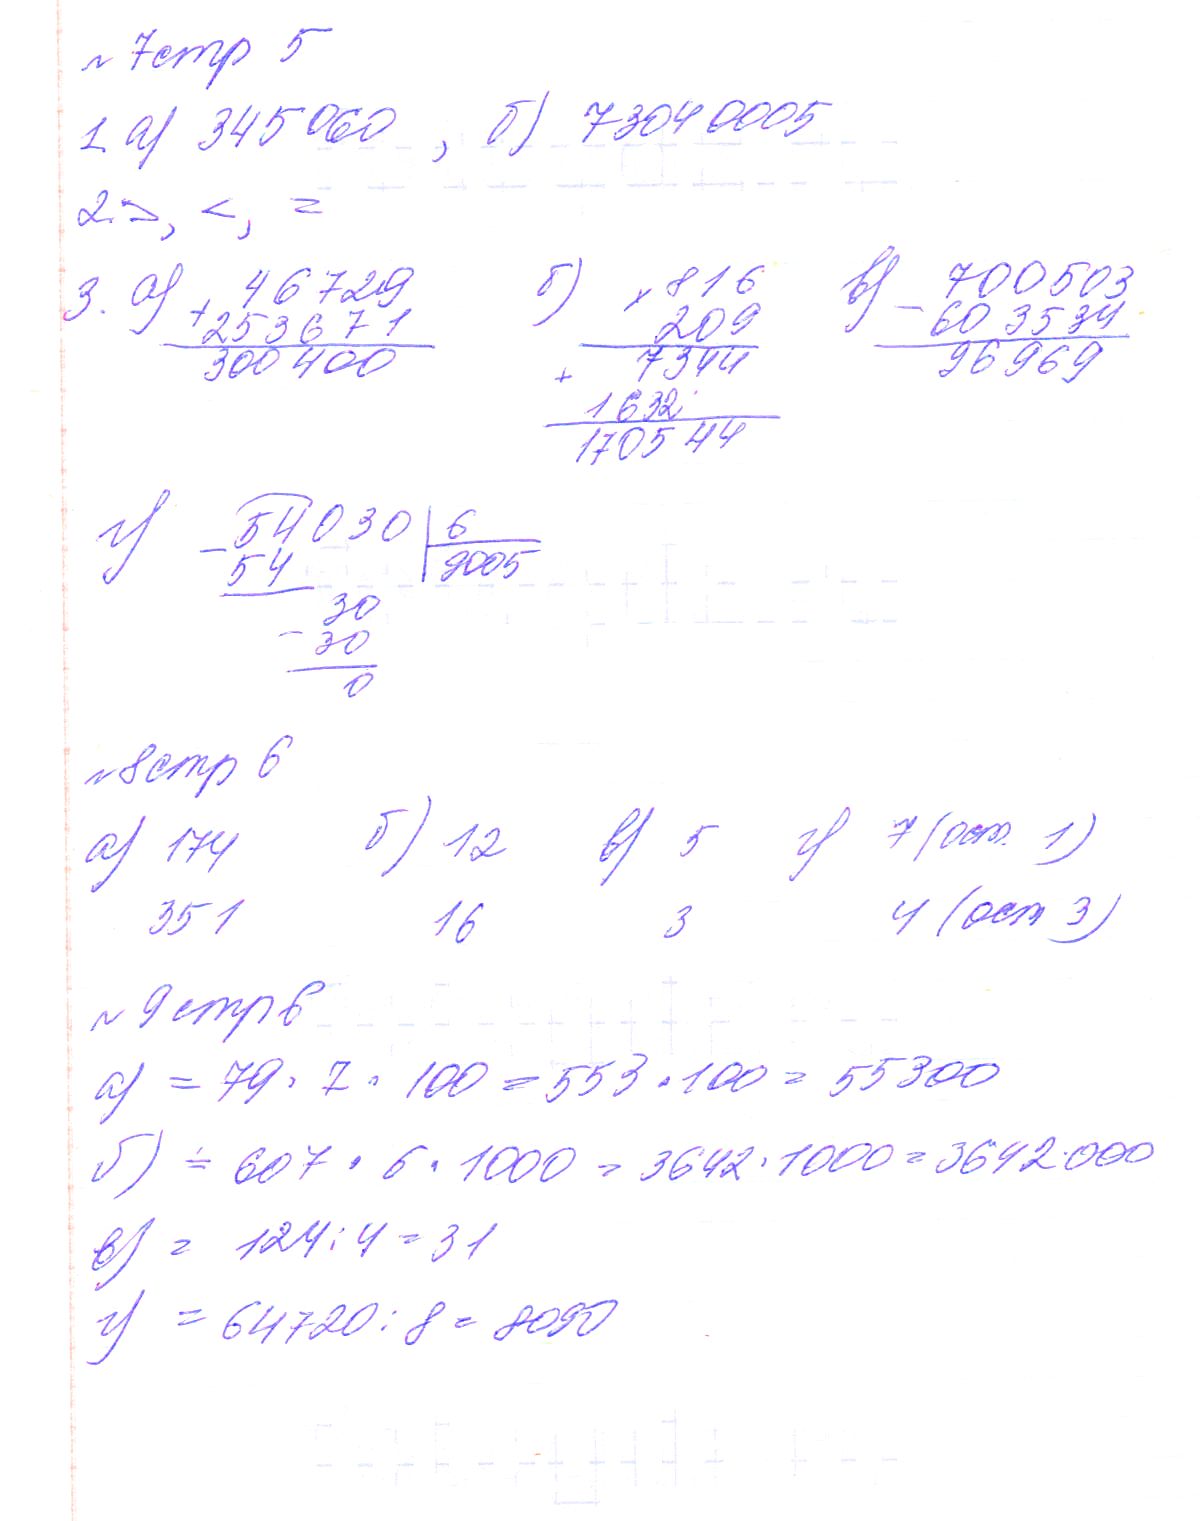 №7 стр 5
1. а) 345060, б) 73040005
2. >, <, =
3. а) + 46729 б) × 816 в) − 700503
253671 209 603534
300400 + 7344 96969
1632
170544
г) − 54030 | 6
54 9005
30
− 30
0
№8 стр 6
а) 174 б) 12 в) 5 г) 7 (ост. 1)
351 16 3 4 (ост 3)
№9 стр 6
а) = 79 · 7 · 100 = 553 · 100 = 55300
б) = 607 · 6 · 1000 = 3642 · 1000 = 3642000
в) = 124 : 4 = 31
г) = 64720 : 8 = 8090